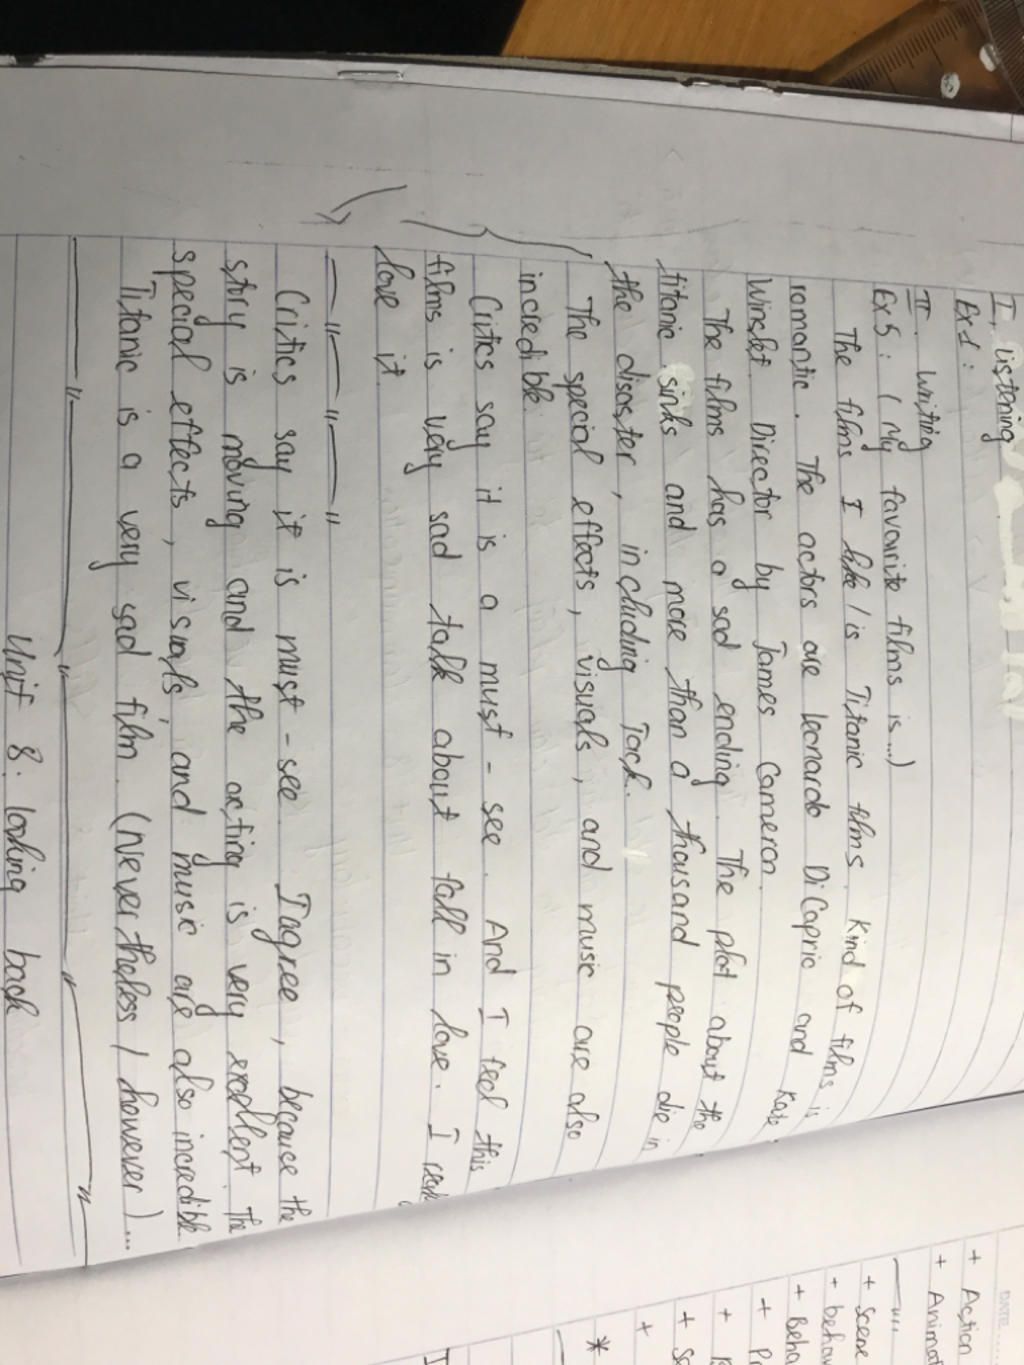 I, Listening
Ex1:
II. Writing
Ex5: (My favourite films is...)
The films I like/is Titanic films. Kind of films is
romantic. The actors are Leonardo DiCapric and Kate
Winslet. Director by James Cameron.
The films has a sad ending. The plot about the
titanic sinks and more than a thousand people die in
the disaster, including Jack.
The special effects, visuals, and music are also
incredible.
Critics say it is a must-see. And I feel this
films is very sad talk about fall in love. I
love it
Critics say it is must-see. I agree, because the
story is moving and the acting is very excellent. The
special effects, visuals, and music are also incredible.
Titanic is a very sad film. (Never theless / however)...
Unit 8: looking back
DATE
+ Action
+ Animat
+ Scene
+ behav
+ Beha
+ Pr
+
+ Sc
+
*